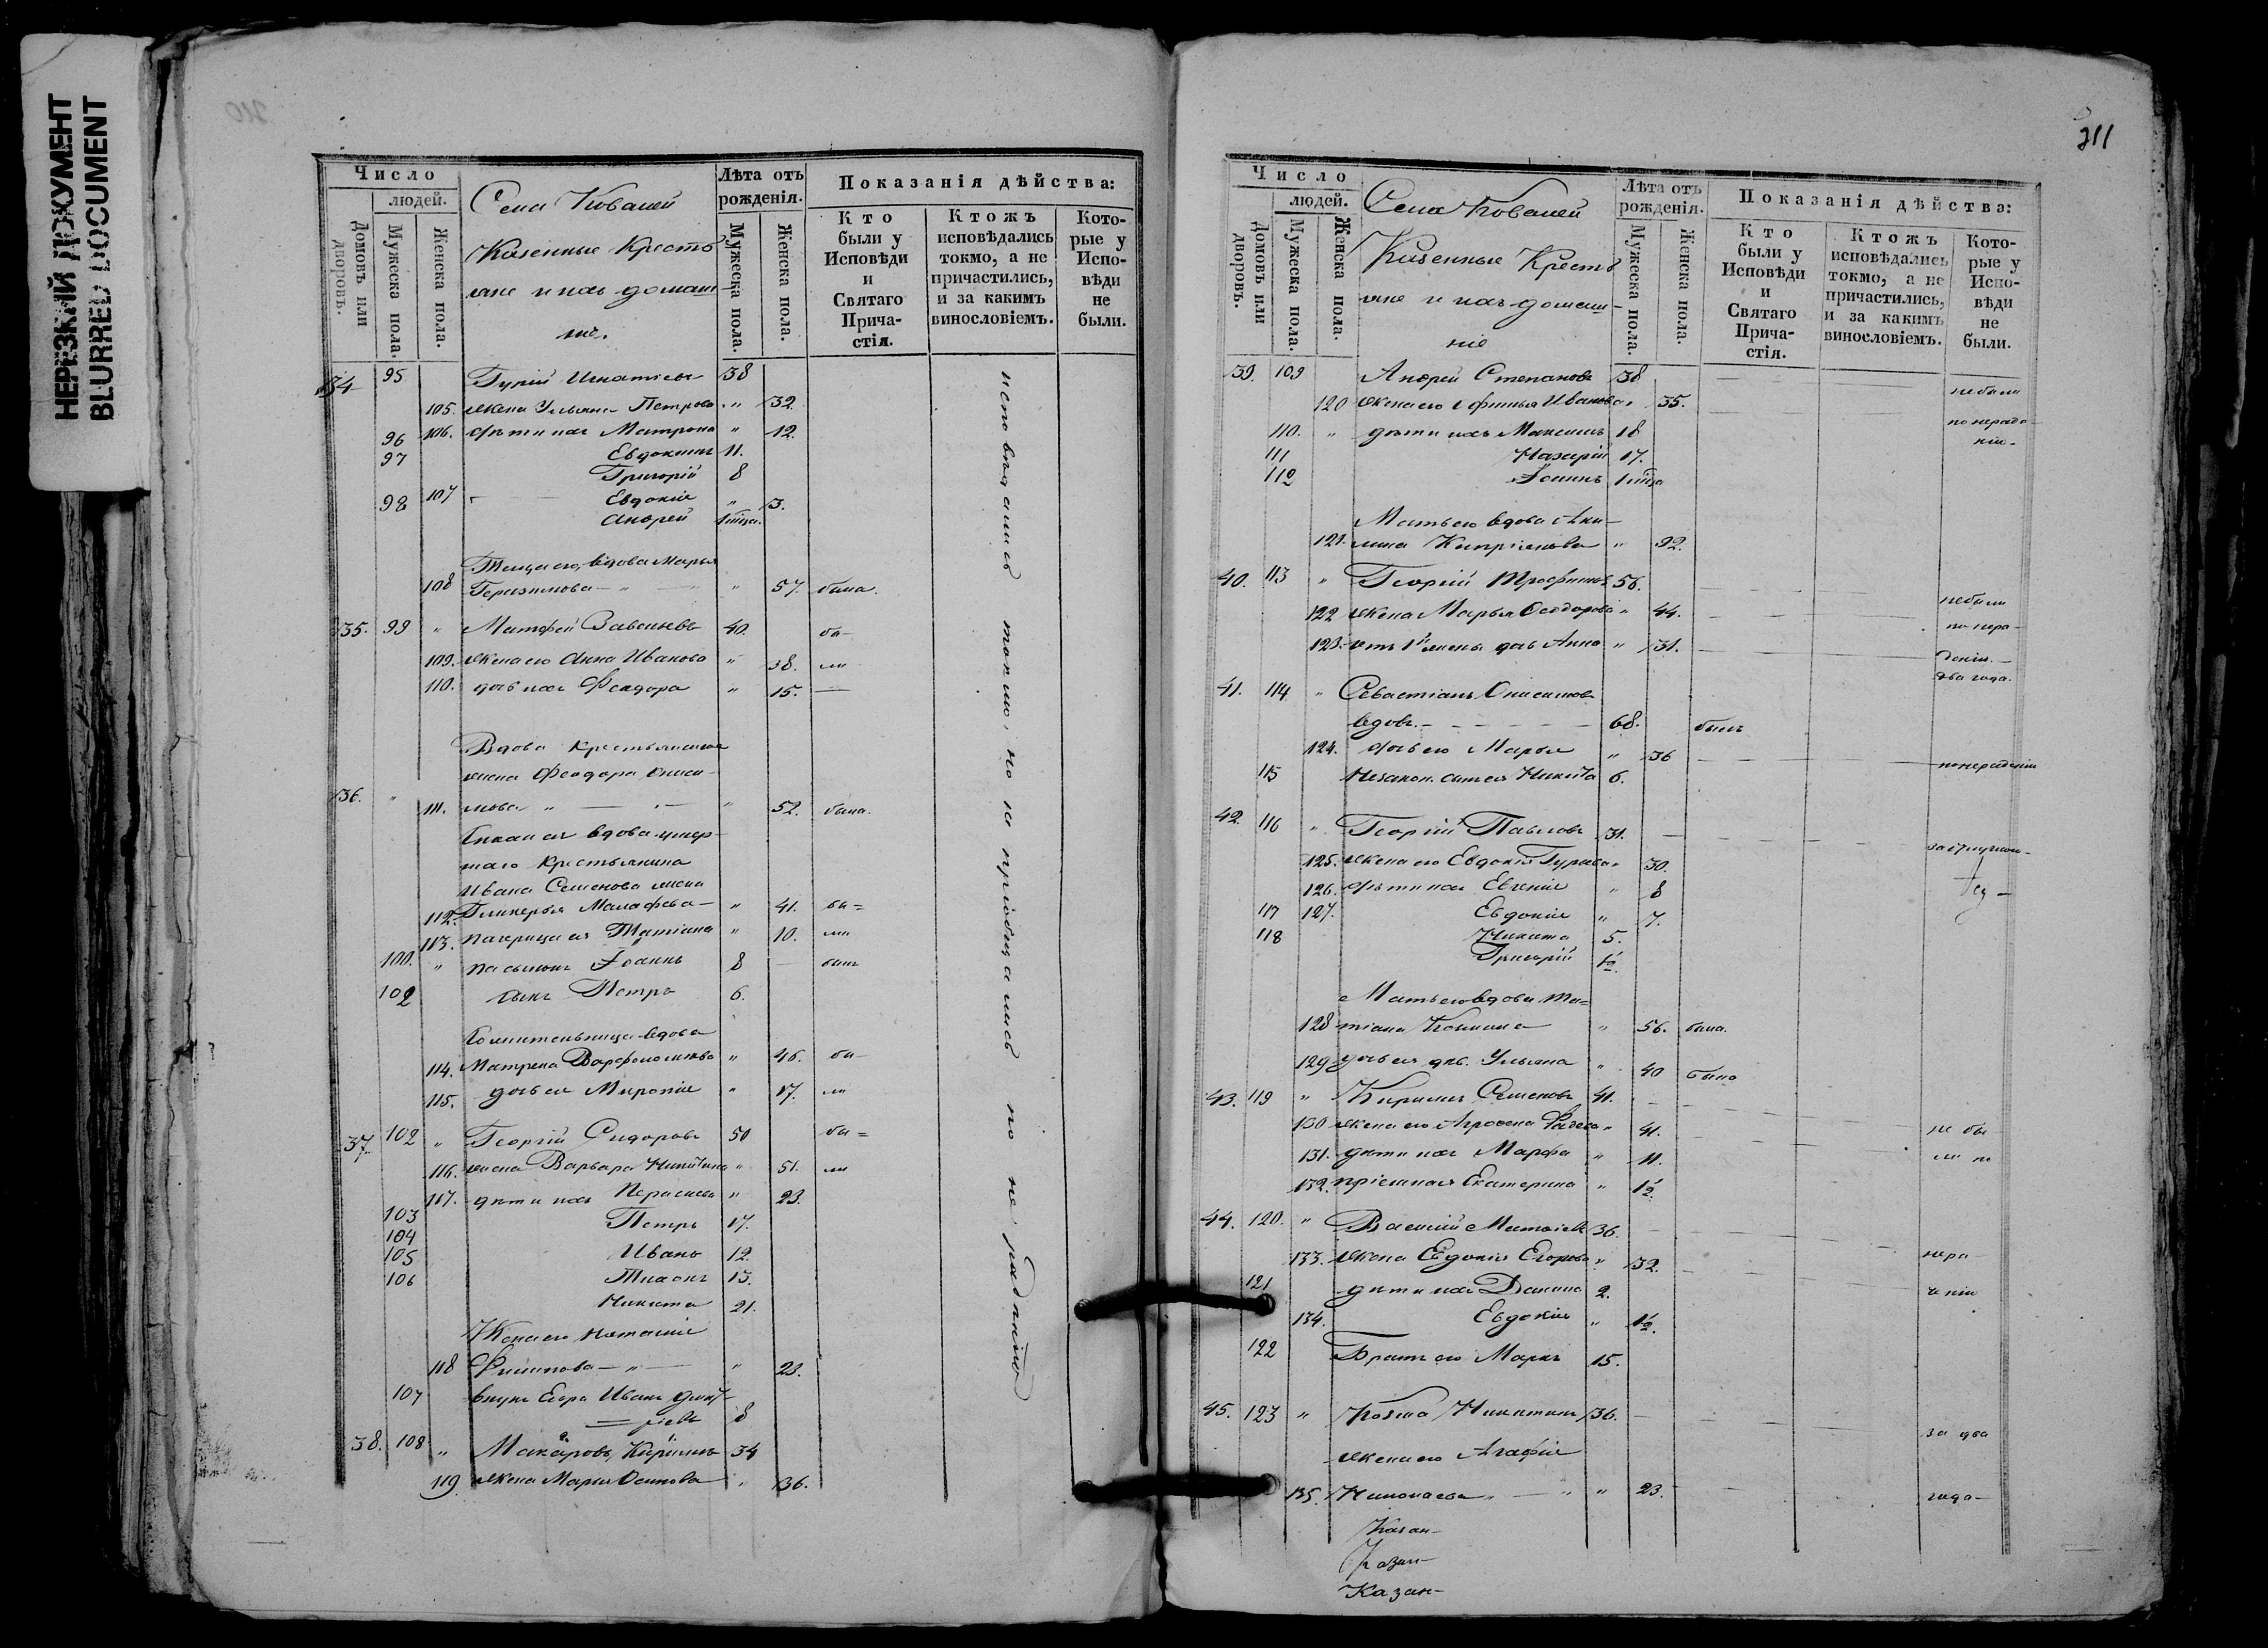 НЕРЕЗКИЙ ДОКУМЕНТ
BLURRED DOCUMENT
210
Число
людей.
Домовъ или дворовъ.
Мужеска пола.
Женска пола.
Села Ковалей
Казенные Кресть
яне и ихъ домаш
ніе.
Лѣта отъ рожденія.
Мужеска пола.
Женска пола.
Показанія дѣйства:
Кто были у Исповѣди и Святаго Прича-стія.
Ктожъ исповѣдались токмо, а не причастились, и за какимъ винословіемъ.
Кото-рые у Испо-вѣди не были.
34 95 Гурій Игнатіевъ 38
105. жена Ульяна Петрова " 32.
106. дѣти ихъ Матрона " 12.
96 Евдокимъ 11.
97 Григорій 8
107 Евдокія " 3.
98 Андрей
Теща его, вдова Марья
108 Герасимова " 57. была.
35. 99 " Матфей Савельевъ 40. бы-
109. жена его Анна Иванова " 38. ли
110. дочь ихъ Феодора " 15.
Вдова Крестьянская
жена Феодора Ониси-
36. " 111. мова " 52. была.
вдова умер-
шаго Крестьянина
Ивана Семенова жена
112. Гликерья Малафеева " 41. бы=
113. падчерица ея Татіана " 10. ли
100. " пасынокъ Іоаннъ 8 былъ
102 сынъ Петръ 6.
вдова
114. Матрена Варфоломеева " 46. бы-
115. дочь ея Миропія " 17. ли
37. 102 " Георгій Сидоровъ 50 бы=
116. жена Варвара Никитина " 51. ли
117. дѣти ихъ Параскева " 23.
103 Петръ 17.
104 Иванъ 12.
105 Тихонъ 13.
106 Никита 21.
Жена его Наталія
118 Филипова " 23.
107 внукъ Егора Иванъ Дмит-
=ріевъ 8
38. 108 " Макаровъ, Кирилъ 34
119 жена Марья Осипова " 36.
исповѣдались токмо, но не пріобщались по нерадѣнію
211
Число
людей.
Домовъ или дворовъ.
Мужеска пола.
Женска пола.
Села Ковалей
Казенные Кресть
яне и ихъ домаш-
ніе
Лѣта отъ рожденія.
Мужеска пола.
Женска пола.
Показанія дѣйства:
Кто были у Исповѣди и Святаго Прича-стія.
Ктожъ исповѣдались токмо, а не причастились, и за какимъ винословіемъ.
Кото-рые у Испо-вѣди не были.
39. 109 Андрей Степановъ 38 небыли
120 жена его Афимья Иванова " 35. по нерадѣ-
110. " дѣти ихъ Максимъ 18 нію.
111 Назарій 17.
112 Іоаннъ
Мать его вдова Аки-
121. лина Кипріянова " 92.
40. 113 " Георгій Трофимовъ 56. небыли
122 жена Марья Феодорова " 44. по нера-
123. отъ 1й жены дочь Анна " 31. дѣнію.
два года.
41. 114 " Севастіанъ Онисимовъ
вдовъ. 68. былъ
124. дочь его Марья " 36 понерадѣнію
115 незакон. сынъ ея Никита 6.
42. 116 " Георгій Павловъ 31.
125. жена его Евдокія Гурьева " 30. за отлучкою
126. дѣти ихъ Евгенія " 8
127. Евдокія " 7.
117 Никита 5.
118 Григорій 1/2.
Мать его вдова Та=
128 тіана Козмина " 56. была.
129 дочь ея дѣв. Ульяна " 40 была
43. 119 " Кирилъ Семеновъ 41.
130 жена его Агрофена " 41. не бы
131. дѣти ихъ Марфа " 11. ли по
132. пріемная Екатерина " 1/2
44. 120. " Василій Матвіевъ 36.
133. жена Евдокія Егорова " 32. нера
121 дѣти ихъ Данило 2. дѣнію
134. Евдокія " 1/2.
122 Братъ его Маркъ 15.
45. 123 " Козма Никитинъ 36. за два
жена его Агафія
135. Николаева " 23. года-
Казан-
Казан-
Казан-